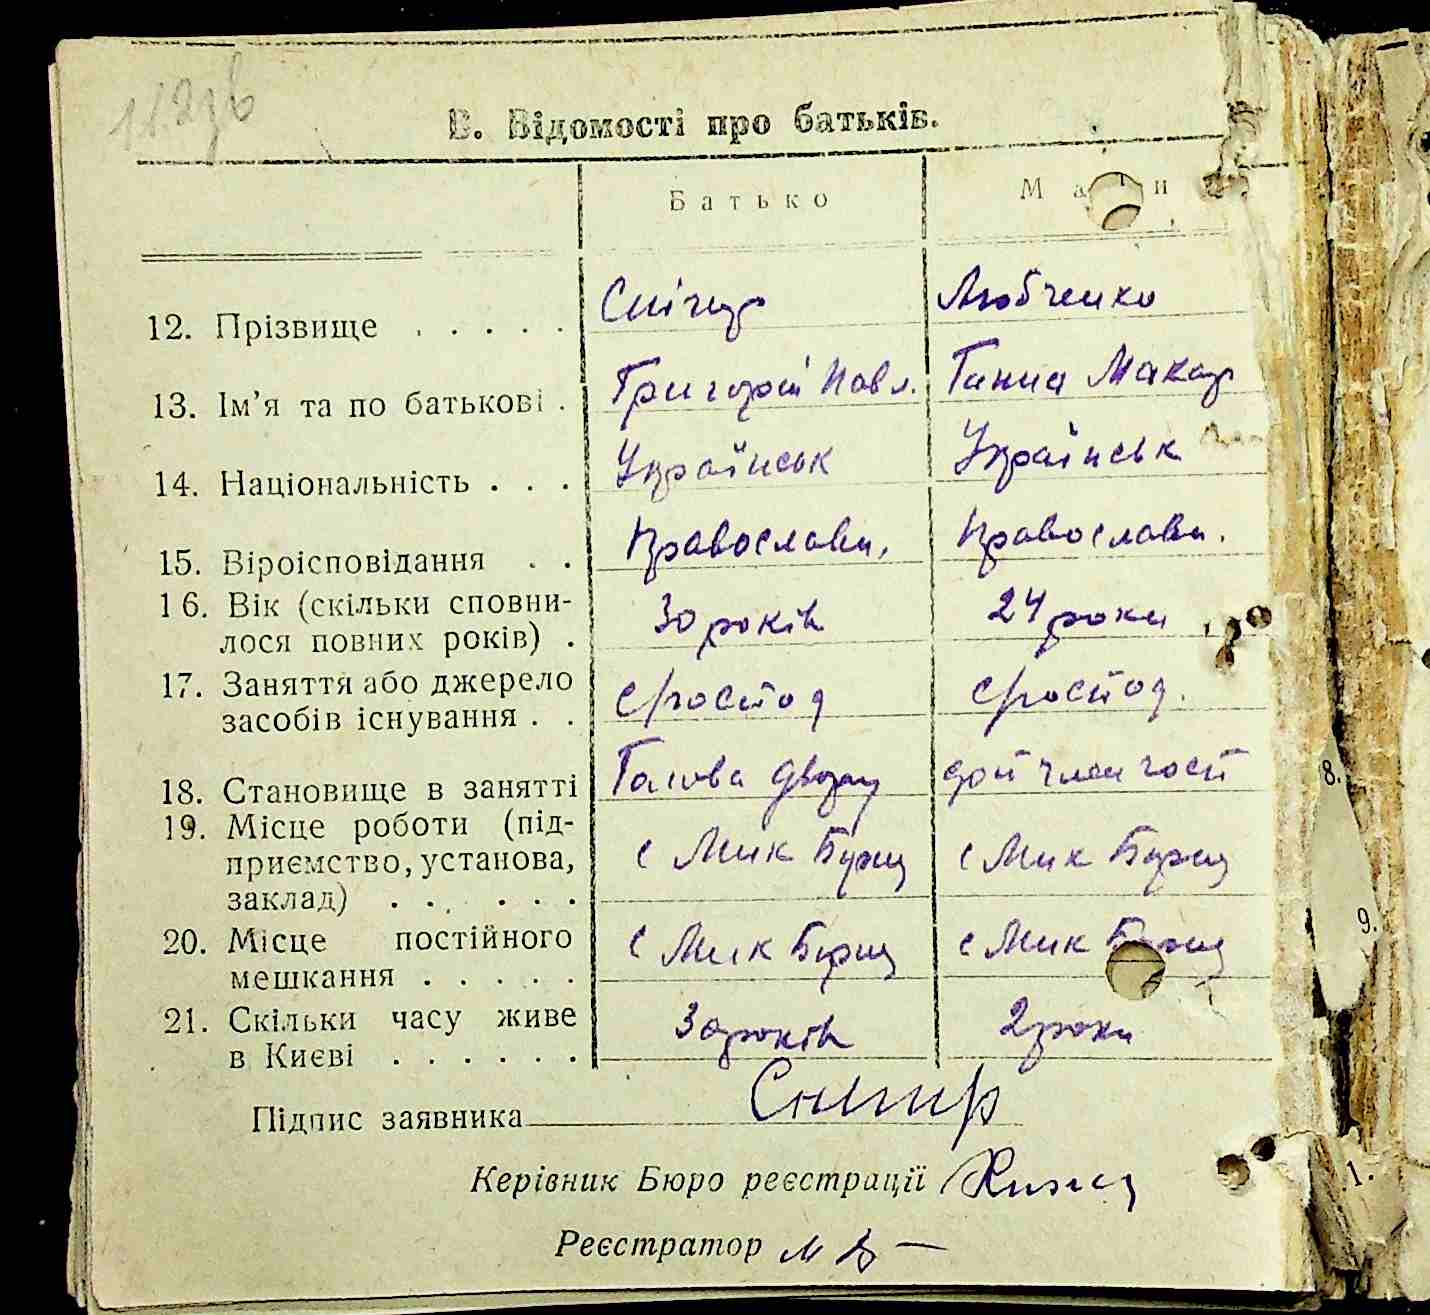 В. Відомості про батьків.
Батько Мати
12. Прізвище . . . . . Снігир Любченко
13. Ім’я та по батькові . Григорій Павл. Ганна Макар
14. Національність . . . Українськ Українськ
15. Віроісповідання . . Православн. Православн.
16. Вік (скільки сповни-
лося повних років) . 30 років 24 роки
17. Заняття або джерело
засобів існування . . с/господ с/господ.
18. Становище в занятті Голова двору доп член госп
19. Місце роботи (під-
приємство, установа, с Мик Борщ с Мик Борщ
заклад) . . . . . .
20. Місце постійного с Мик Борщ с Мик Борщ
мешкання . . . . .
21. Скільки часу живе
в Києві . . . . . . 30 років 2 роки
Підпис заявника Снігир
Керівник Бюро реєстрації
Реєстратор
8.
9.
1.